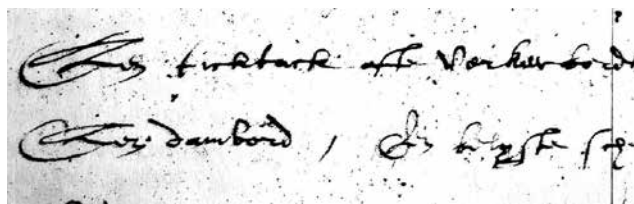 Een ticktack ofte Verkeerbord
Een dambord, Een